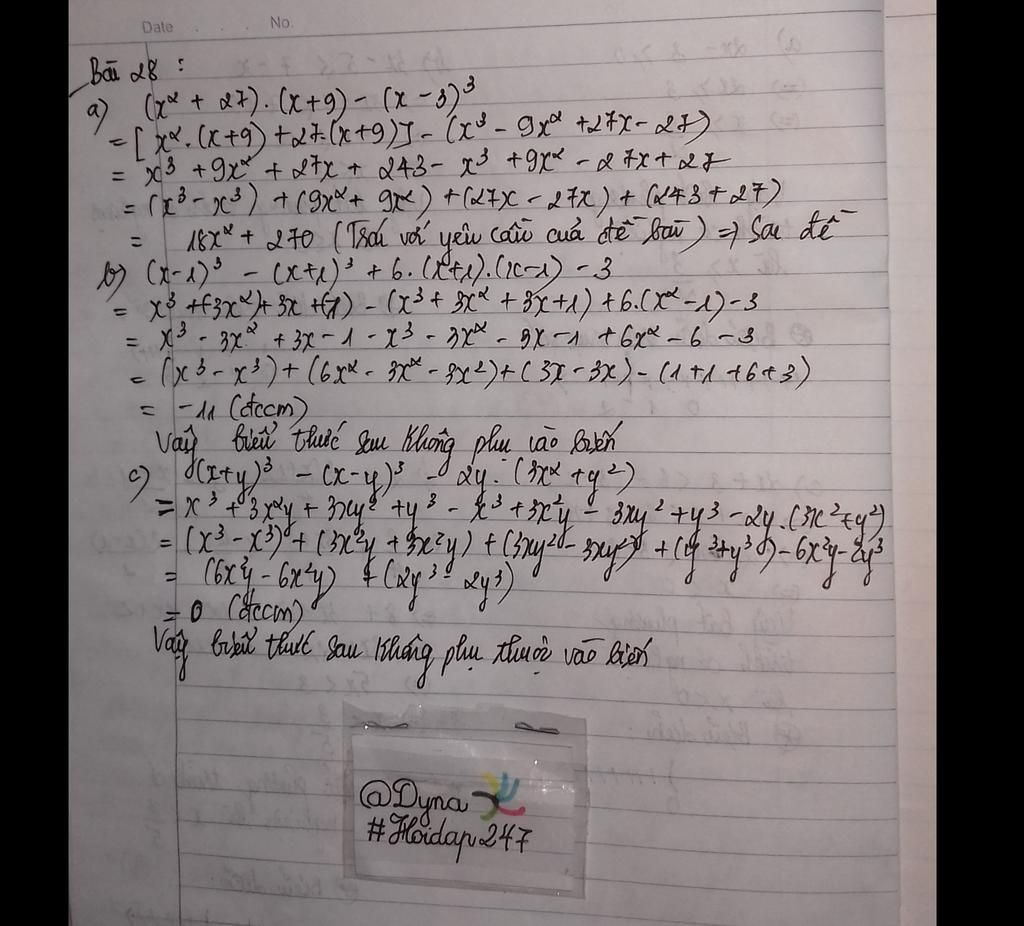 Date . . . No.
Bài 28 :
a) (x² + 27).(x+9) - (x - 3)³
= [x².(x+9) + 27.(x+9)] - (x³ - 9x² + 27x - 27)
= x³ + 9x² + 27x + 243 - x³ + 9x² - 27x + 27
= (x³ - x³) + (9x² + 9x²) + (27x - 27x) + (243 + 27)
= 18x² + 270 (Trái với yêu cầu của đề bài) => Sai đề
b) (x-1)³ - (x+1)³ + 6.(x+1).(x-1) - 3
= x³ + (-3x²) + 3x + (-1) - (x³ + 3x² + 3x + 1) + 6.(x² - 1) - 3
= x³ - 3x² + 3x - 1 - x³ - 3x² - 3x - 1 + 6x² - 6 - 3
= (x³ - x³) + (6x² - 3x² - 3x²) + (3x - 3x) - (1 + 1 + 6 + 3)
= -11 (đccm)
Vậy biểu thức sau không phụ vào biến
c) (x+y)³ - (x-y)³ - 2y.(3x² + y²)
= x³ + 3x²y + 3xy² + y³ - x³ + 3x²y - 3xy² + y³ - 2y.(3x² + y²)
= (x³ - x³) + (3x²y + 3x²y) + (3xy² - 3xy²) + (y³ + y³) - 6x²y - 2y³
= (6x²y - 6x²y) + (2y³ - 2y³)
= 0 (đccm)
Vậy biểu thức sau không phụ thuộc vào biến
@Dyna
#Hoidap247